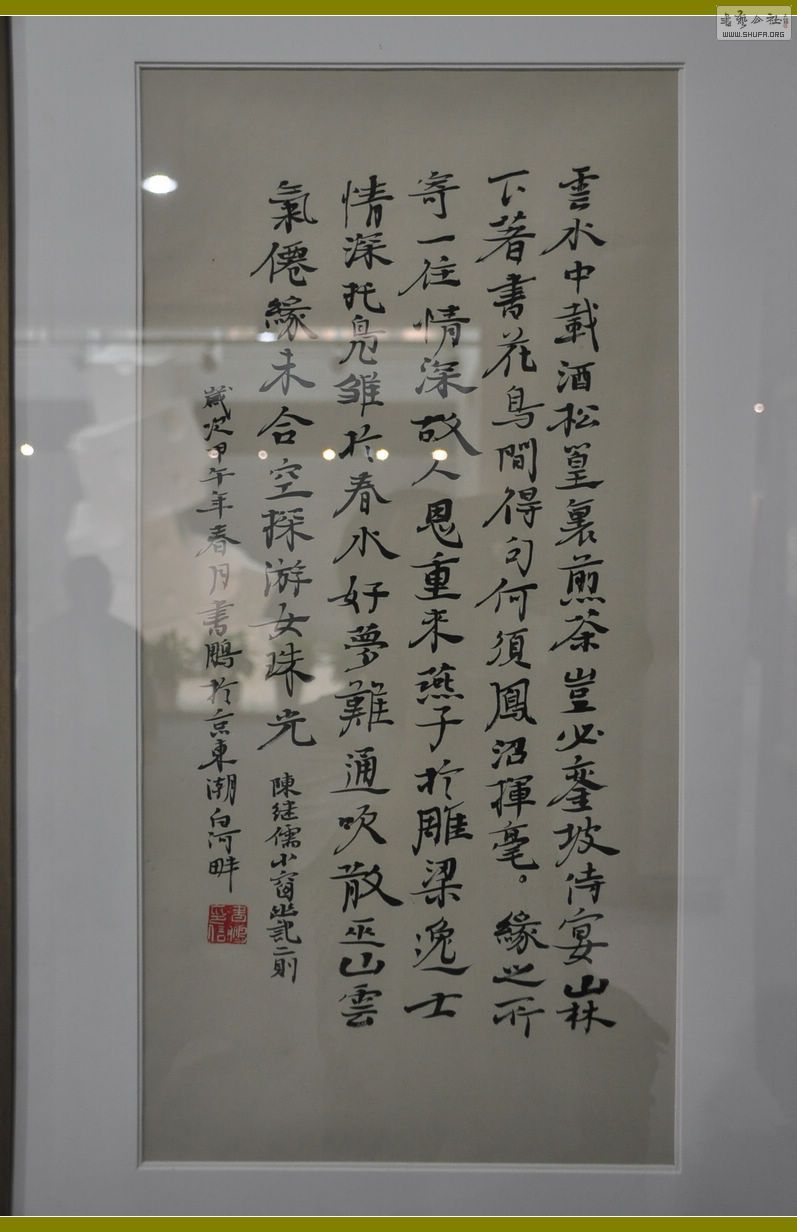 雲水中載酒松篁裏煎茶豈必鑾坡侍宴山林
下著書花鳥間得句何須鳳沼揮毫。緣之所
寄一往情深故人恩重來燕子於雕梁逸士
情深托鳧雛於春水好夢難通吹散巫山雲
氣僊緣未合空探游女珠光
陳继儒小窗幽記二則
歲次甲午年春月書鵬於京東潮白河畔
WWW.SHUFA.ORG